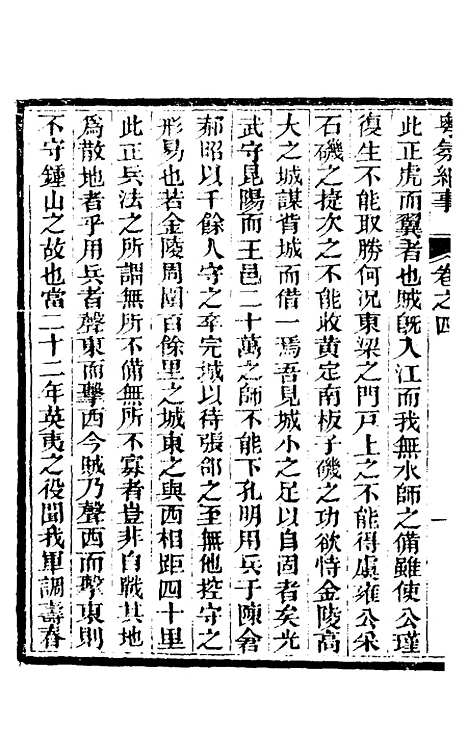 粵氛紀事 卷之四 一
此正虎而翼者也賊旣入江而我無水師之備雖使公瑾
復生不能取勝何況東梁之門戸上之不能得虞雍公采
石磯之捷次之不能收黃定南板子磯之功欲恃金陵高
大之城謀背城而借一焉吾見城小之足以自固者矣光
武守昆陽而王邑二十萬之師不能下孔明用兵于陳倉
郝昭以千餘人守之卒完城以待張郃之至無他控守之
形易也若金陵周圍百餘里之城東之與西相距四十里
此正兵法之所謂無所不備無所不寡者豈非自戰其地
爲散地者乎用兵者聲東而擊西今賊乃聲西而擊東則
不守鍾山之故也當二十二年英夷之役聞我軍調壽春